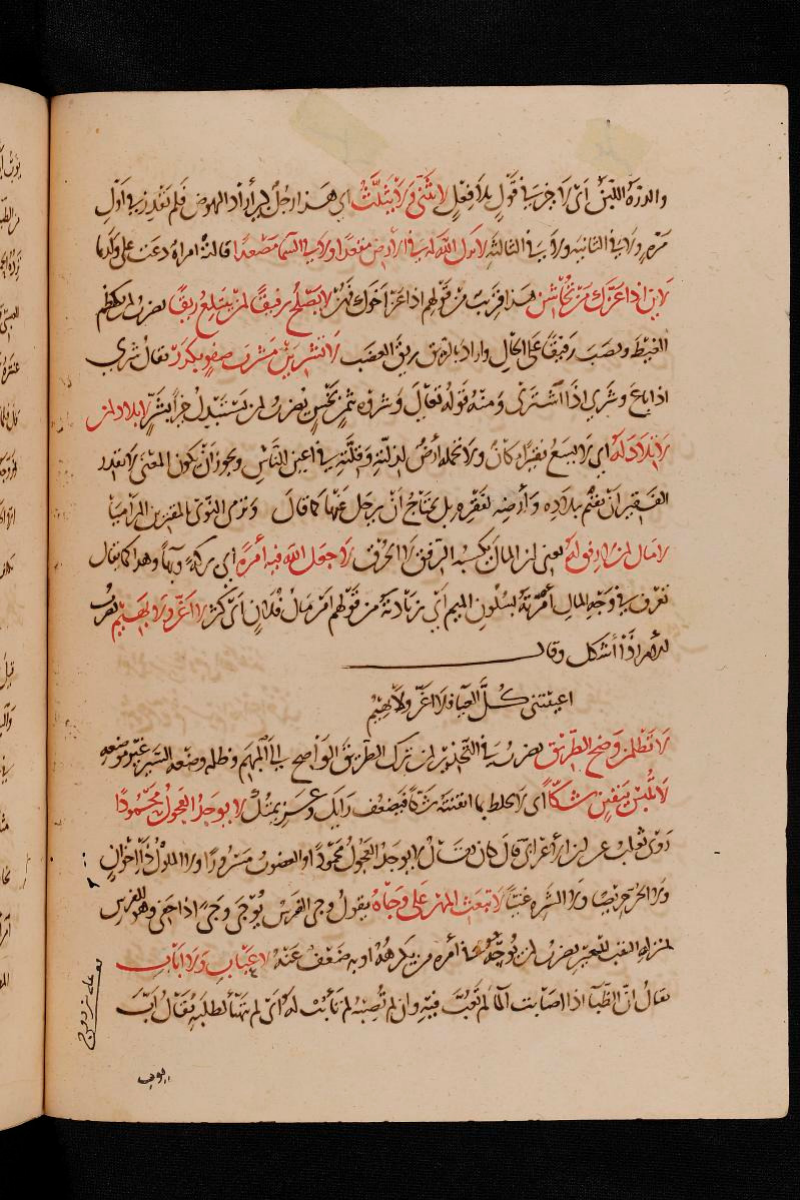 والدرّة اللبن أي لا خير في قول بلا فعل لا يثنّي ولا يثلّث أي هذا رجل كبير أراد النهوض فلم يقدر في أول
مرة ولا في الثانية ولا في الثالثة لا تركب الله في الأرض مقعدا ولا في السما مصعدا قالته امراة دعت على ولدها
لاين اذا عزّك من تخاشن هذا قريب من قولهم اذا عز اخوك فهن لا يصلح رفيقا من لم يبتلع ريقا يضرب لمن يكظم
الغيظ ونصب رفيقا على الحال واراد بالريق ريق الغضب لا تشرين مشرى صفو يكدر يقال شرى
اذا باع وشرى اذا اشترى ومنه قوله تعالى وشروه بثمن بخس يضرب لمن يستبدل خيرا بشر لا بلاد لمن
لا تلاد له أي لا يسع فقيرا مكان ولا تحمله أرض لذلته وقلته في اعين الناس ويجوز أن يكون المعنى لا يقدر
الفقير أن يقيم ببلاده وأرضه لفقره بل يحتاج أن يرحل عنها كما قال وترى النوى بالمقترين المراميا
لا مال لمن لا رفق له يعني ان المال يكسبه الرفق لا الخرق لا جعل الله فيه أمرة أي بركة ونما وهذا كما يقال
تعرف في وجه المال أمرته بسكون الميم أي زيادته من قولهم امر مال فلان أي كثر لا اغرّ ولا بهيم يضرب
للامر اذا أشكل وقال
اعيتني كل العيا فلا اغرّ ولا بهيم
لا تظلمن وضح الطريق يضرب في التحذير لمن ترك الطريق الواضح إلى المبهم وظلمه وضعه السير غير موضعه
لا تلبس بيقين شكا أي لا تخلط بما ايقنته شكا فيضعف رايك وعسى بمثل لا يوجد العجول محمودا
روى ثعلب عن ابن الأعرابي قال كان يقال لا يوجد العجول محمودا ولا الغضوب مسرورا ولا الملول ذا اخوان
ولا الحر حريصا ولا الشره غنيا لا تبعث المهر على وجاه يقول وجى الفرس يوجى وجى اذا حفى وهو للفرس
بمنزلة النقب للبعير يضرب لمن يوجه في أمره من يكرهه او به ضعف عنه لا عباب ولا اباب
يقال انّ الظباء اذا اصابت الما لم تعب فيه وان لم تصبه لم تأبب له أي لم تتهيأ لطلبه يقال أبّ
يوب